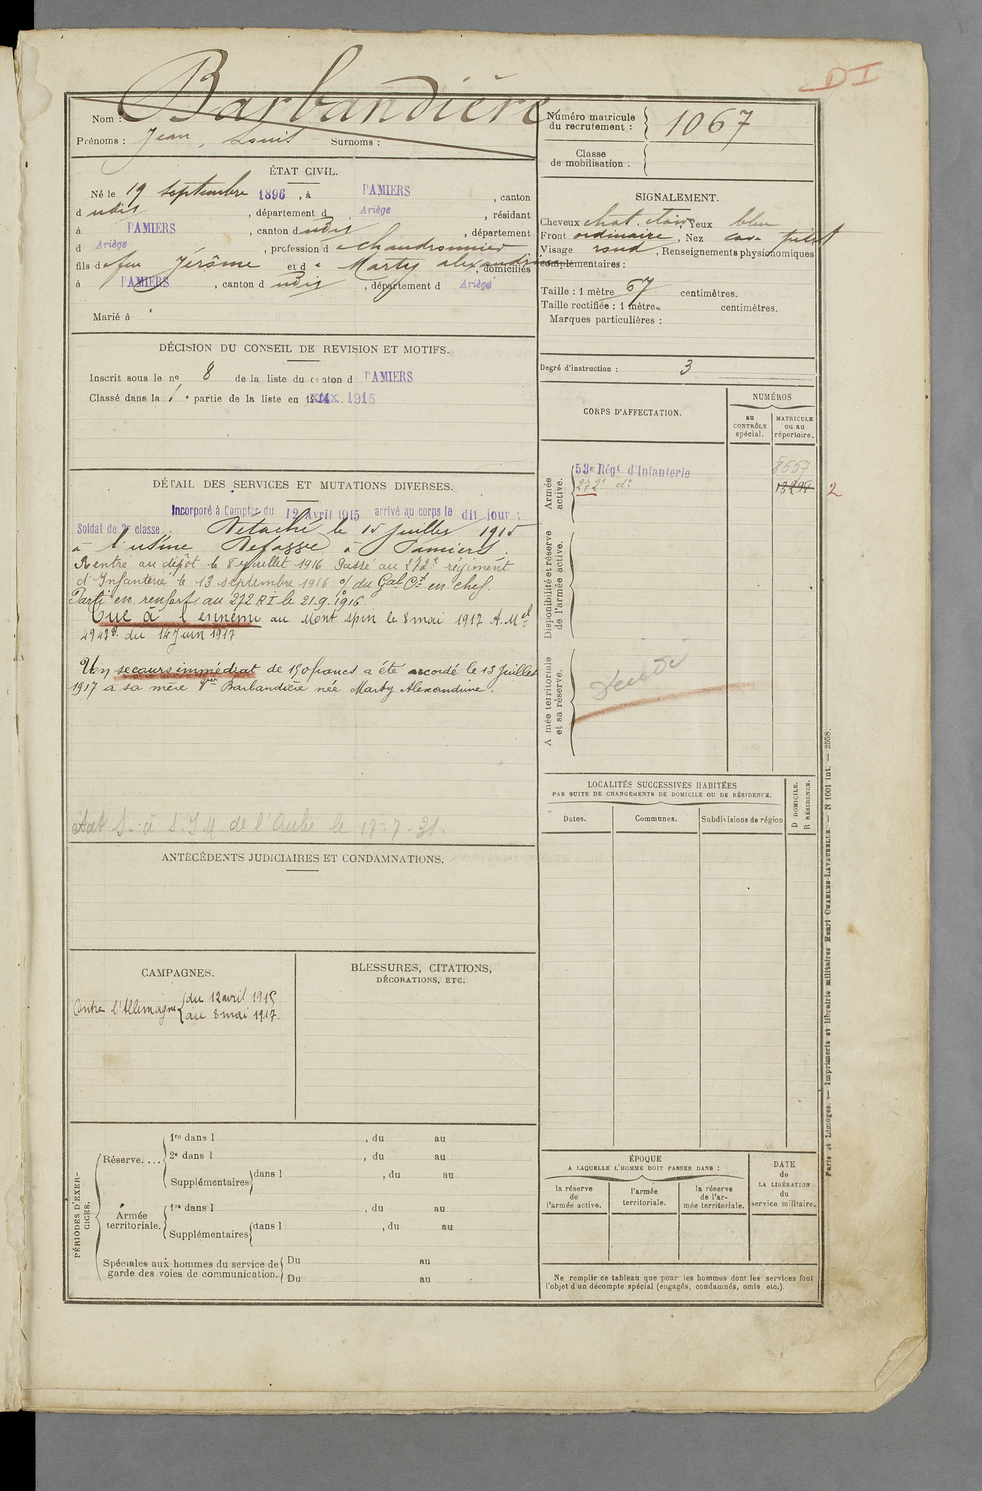 DI
Nom : Barbandière
Prénoms : Jean, Louis Surnoms :
Numéro matricule du recrutement : 1067
Classe de mobilisation :
ÉTAT CIVIL.
Né le 19 septembre 1896, à PAMIERS, canton
d udit, département d Ariège, résidant
à PAMIERS, canton d udit, département
d Ariège, profession d e chaudronnier
fils de feu Jérôme et de Marty alexandrine, domiciliés
à PAMIERS, canton d udit, département d Ariège
Marié à
SIGNALEMENT.
Cheveux chat. clair, Yeux bleu
Front ordinaire, Nez
Visage rond, Renseignements physionomiques
complémentaires :
Taille : 1 mètre 67 centimètres.
Taille rectifiée : 1 mètre centimètres.
Marques particulières :
DÉCISION DU CONSEIL DE REVISION ET MOTIFS.
Inscrit sous le no 8 de la liste du canton d PAMIERS
Classé dans la 1e partie de la liste en 1915
Degré d'instruction : 3
CORPS D'AFFECTATION.
NUMÉROS
au CONTRÔLE spécial.
MATRICULE ou au répertoire.
Armée active.
53e Régt d'Infanterie 8657
272e do 2
Disponibilité et réserve de l'armée active.
Armée territoriale et sa réserve.
DÉTAIL DES SERVICES ET MUTATIONS DIVERSES.
Incorporé à Compter du 12 Avril 1915 arrivé au corps le dit jour :
Soldat de 2e classe. Détaché le 15 juillet 1915
à l'usine Defasse à Pamiers.
Rentré au dépôt le 8 juillet 1916 Passé au 272e régiment
d'Infanterie le 13 septembre 1916 o/ du Gal Ct en chef.
Parti en renfort au 272 RI le 21.9.1916.
Tué à l'ennemi au Mont spin le 8 mai 1917 A.Mel
du 14 Juin 1917
Un secours immédiat de 150 francs a été accordé le 13 Juillet
1917 à sa mère Vve Barbandière née Marty Alexandrine.
de l'Aube le 17-7-31.
LOCALITÉS SUCCESSIVES HABITÉES
PAR SUITE DE CHANGEMENTS DE DOMICILE OU DE RÉSIDENCE.
Dates. Communes. Subdivisions de région
D DOMICILE.
R RÉSIDENCE.
ANTÉCÉDENTS JUDICIAIRES ET CONDAMNATIONS.
CAMPAGNES.
Contre l'Allemagne du 12 avril 1915
au 8 mai 1917.
BLESSURES, CITATIONS,
DÉCORATIONS, ETC.
PÉRIODES D'EXERCICES.
Réserve....
1re dans l , du au
2e dans l , du au
Supplémentaires dans l , du au
Armée territoriale.
1re dans l , du au
Supplémentaires dans l , du au
Spéciales aux hommes du service de garde des voies de communication.
Du au
Du au
ÉPOQUE
A LAQUELLE L'HOMME DOIT PASSER DANS :
la réserve de l'armée active.
l'armée territoriale.
la réserve de l'armée territoriale.
DATE de LA LIBÉRATION du service militaire.
Ne remplir ce tableau que pour les hommes dont les services font
l'objet d'un décompte spécial (engagés, condamnés, omis etc.).
Paris et Limoges. — Imprimerie et librairie militaires Henri CHARLES-LAVAUZELLE. — N 1001 int. — 2558.